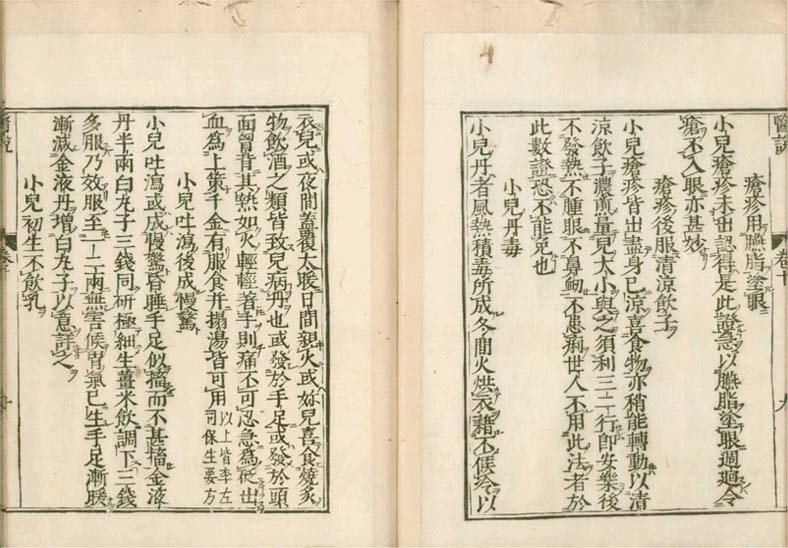 醫說
卷十
九
瘡疹用臙脂塗眼
小兒瘡疹未出認得是此證急以臙脂塗眼週迴令
瘡不入眼亦甚妙
瘡疹後服清涼飲子
小兒瘡疹皆出盡身已涼喜食物亦稍能轉動以清
涼飲子濃煎量兒大小與之須利三二行即安樂後
不發熱不腫眼不鼻衂不患痢世人不用此法者於
此數證恐不能免也
小兒丹毒
小兒丹者風熱積毒所成冬間火烘衣藉不候冷以
衣兒或夜間蓋覆太暖日間親火或妳兒喜食燒炙
物飲酒之類皆致兒病丹也或發於手足或發於頭
面胷背其熱如火輕輕著手則痛不可忍急爲砭出
血爲上策千金有服食并搨湯皆可用以上皆李左司保生要方
小兒吐瀉後成慢驚
小兒吐瀉或成慢驚昏睡手足似搐而不甚搐金液
丹半兩白丸子三錢同研極細生薑米飲調下三錢
多服乃效服至一二兩無害候胃氣已生手足漸暖
漸減金液丹增白丸子以意詳之
小兒初生不飲乳
醫說